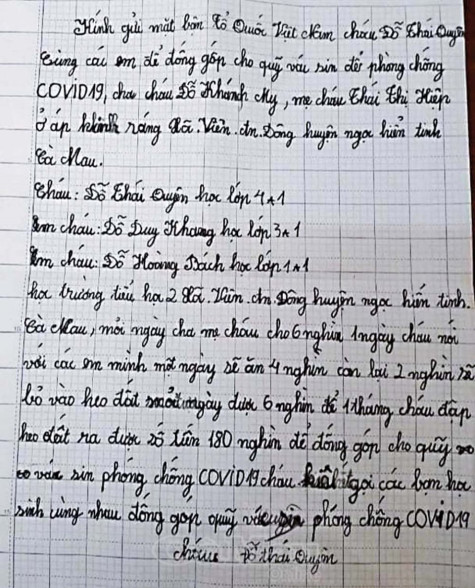 Kính gửi mặt bận Tổ Quốc Việt Nam cháu Đỗ Thái Quyên
cùng các em để đóng góp cho quỹ vác sin để phòng chống
COVID19, cha cháu Đỗ Khánh My, mẹ cháu Thái Thị Hiệp
ở ấp kinh ráng Xã. Viên. An. Đông huyện ngọc hiển tỉnh
Cà Mau.
Cháu: Đỗ Thái Quyên học lớp 4A1
Em cháu: Đỗ Duy Khang học lớp 3A1
Em cháu: Đỗ Hoàng Bách học lớp 1A1
học trường tiểu học 2 Xã. Viên. An. Đông huyện ngọc hiển tỉnh.
Cà Mau, mỗi ngày cha mẹ cháu cho 6 nghìn 1 ngày cháu nói
với các em mình một ngày sẽ ăn 4 nghìn còn lại 2 nghìn sẽ
bỏ vào heo đất ngày được 6 nghìn để 1 tháng cháu đập
heo đất ra được số tiền 180 nghìn để đóng góp cho quỹ
vác sin phòng chống COVID19 cháu gọi các bạn học
sinh cùng nhau đóng góp quỹ phòng chống COVID19
cháu: Đỗ thái Quyên